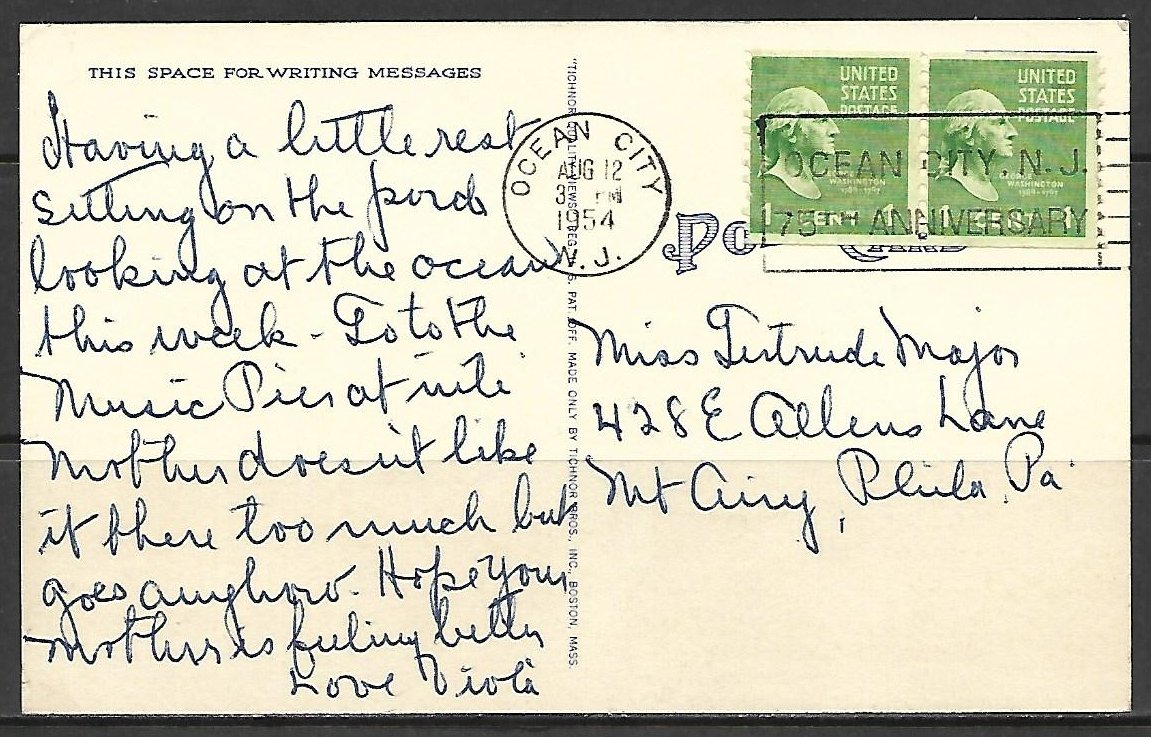 THIS SPACE FOR WRITING MESSAGES
Having a little rest
sitting on the porch
looking at the ocean
this week - Go to the
Music Pier at nite
Mother doesn't like
it there too much but
goes anyhow. Hope your
Mother is feeling better
Love Viola
"TICHNOR QUALITY VIEWS" REG. U. S. PAT. OFF. MADE ONLY BY TICHNOR BROS., INC., BOSTON, MASS.
OCEAN CITY
AUG 12
3 PM
1954
N. J.
UNITED
STATES
POSTAGE
WASHINGTON
1789-1797
1 CENT 1
UNITED
STATES
POSTAGE
GEORGE
WASHINGTON
1789-1797
1 CENT 1
OCEAN CITY, N. J.
75 ANNIVERSARY
Miss Gertrude Major
428 E Allens Lane
Mt Airy, Phila, Pa